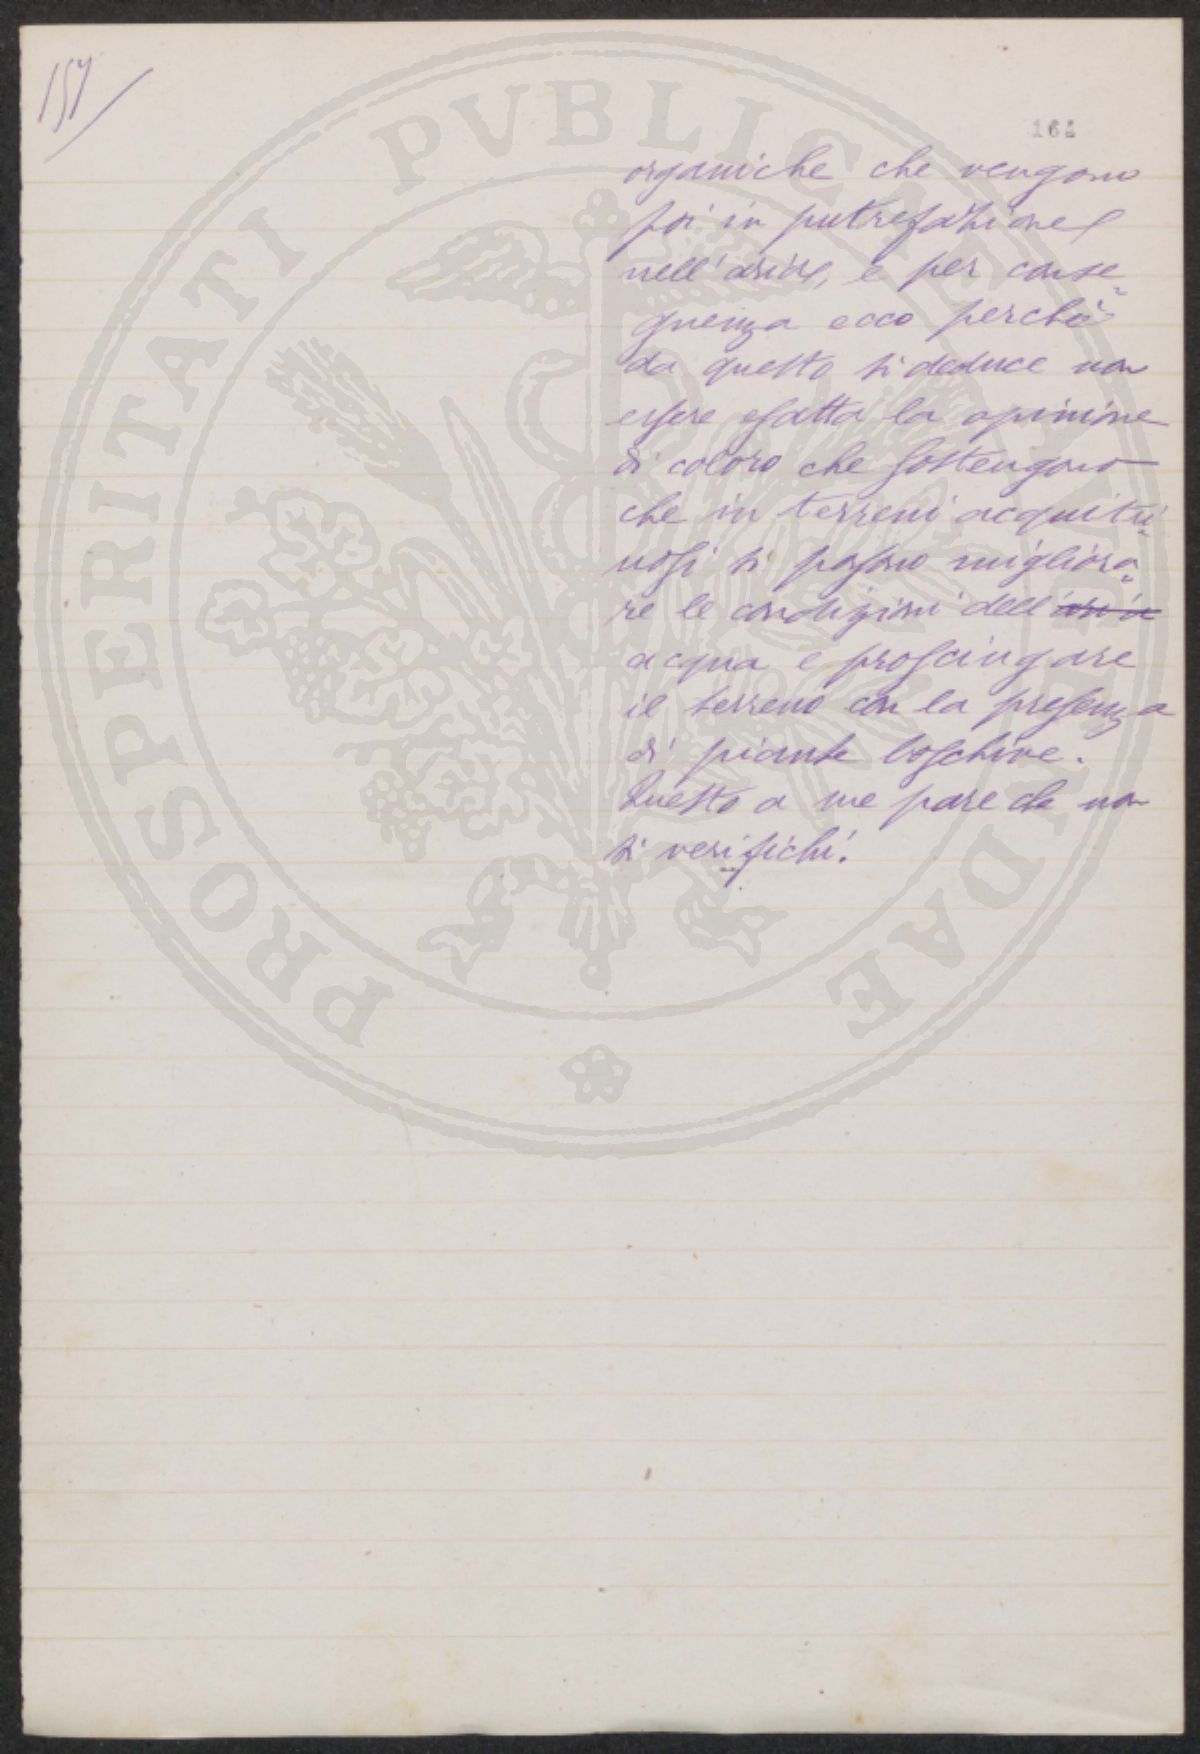 157
164
organiche che vengono
poi in putrefazione
nell'aria, e per conse„
guenza ecco perchè
da questo si deduce non
essere esatta la opinione
di coloro che sostengono
che in terreni acquitri„
nosi si possano migliora„
re le condizioni dell'aria
acqua e prosciugare
il terreno con la presenza
di piante boschive.
Questo a me pare che non
si verifichi.
PROSPERITATI PVBLICAE AVGENDAE